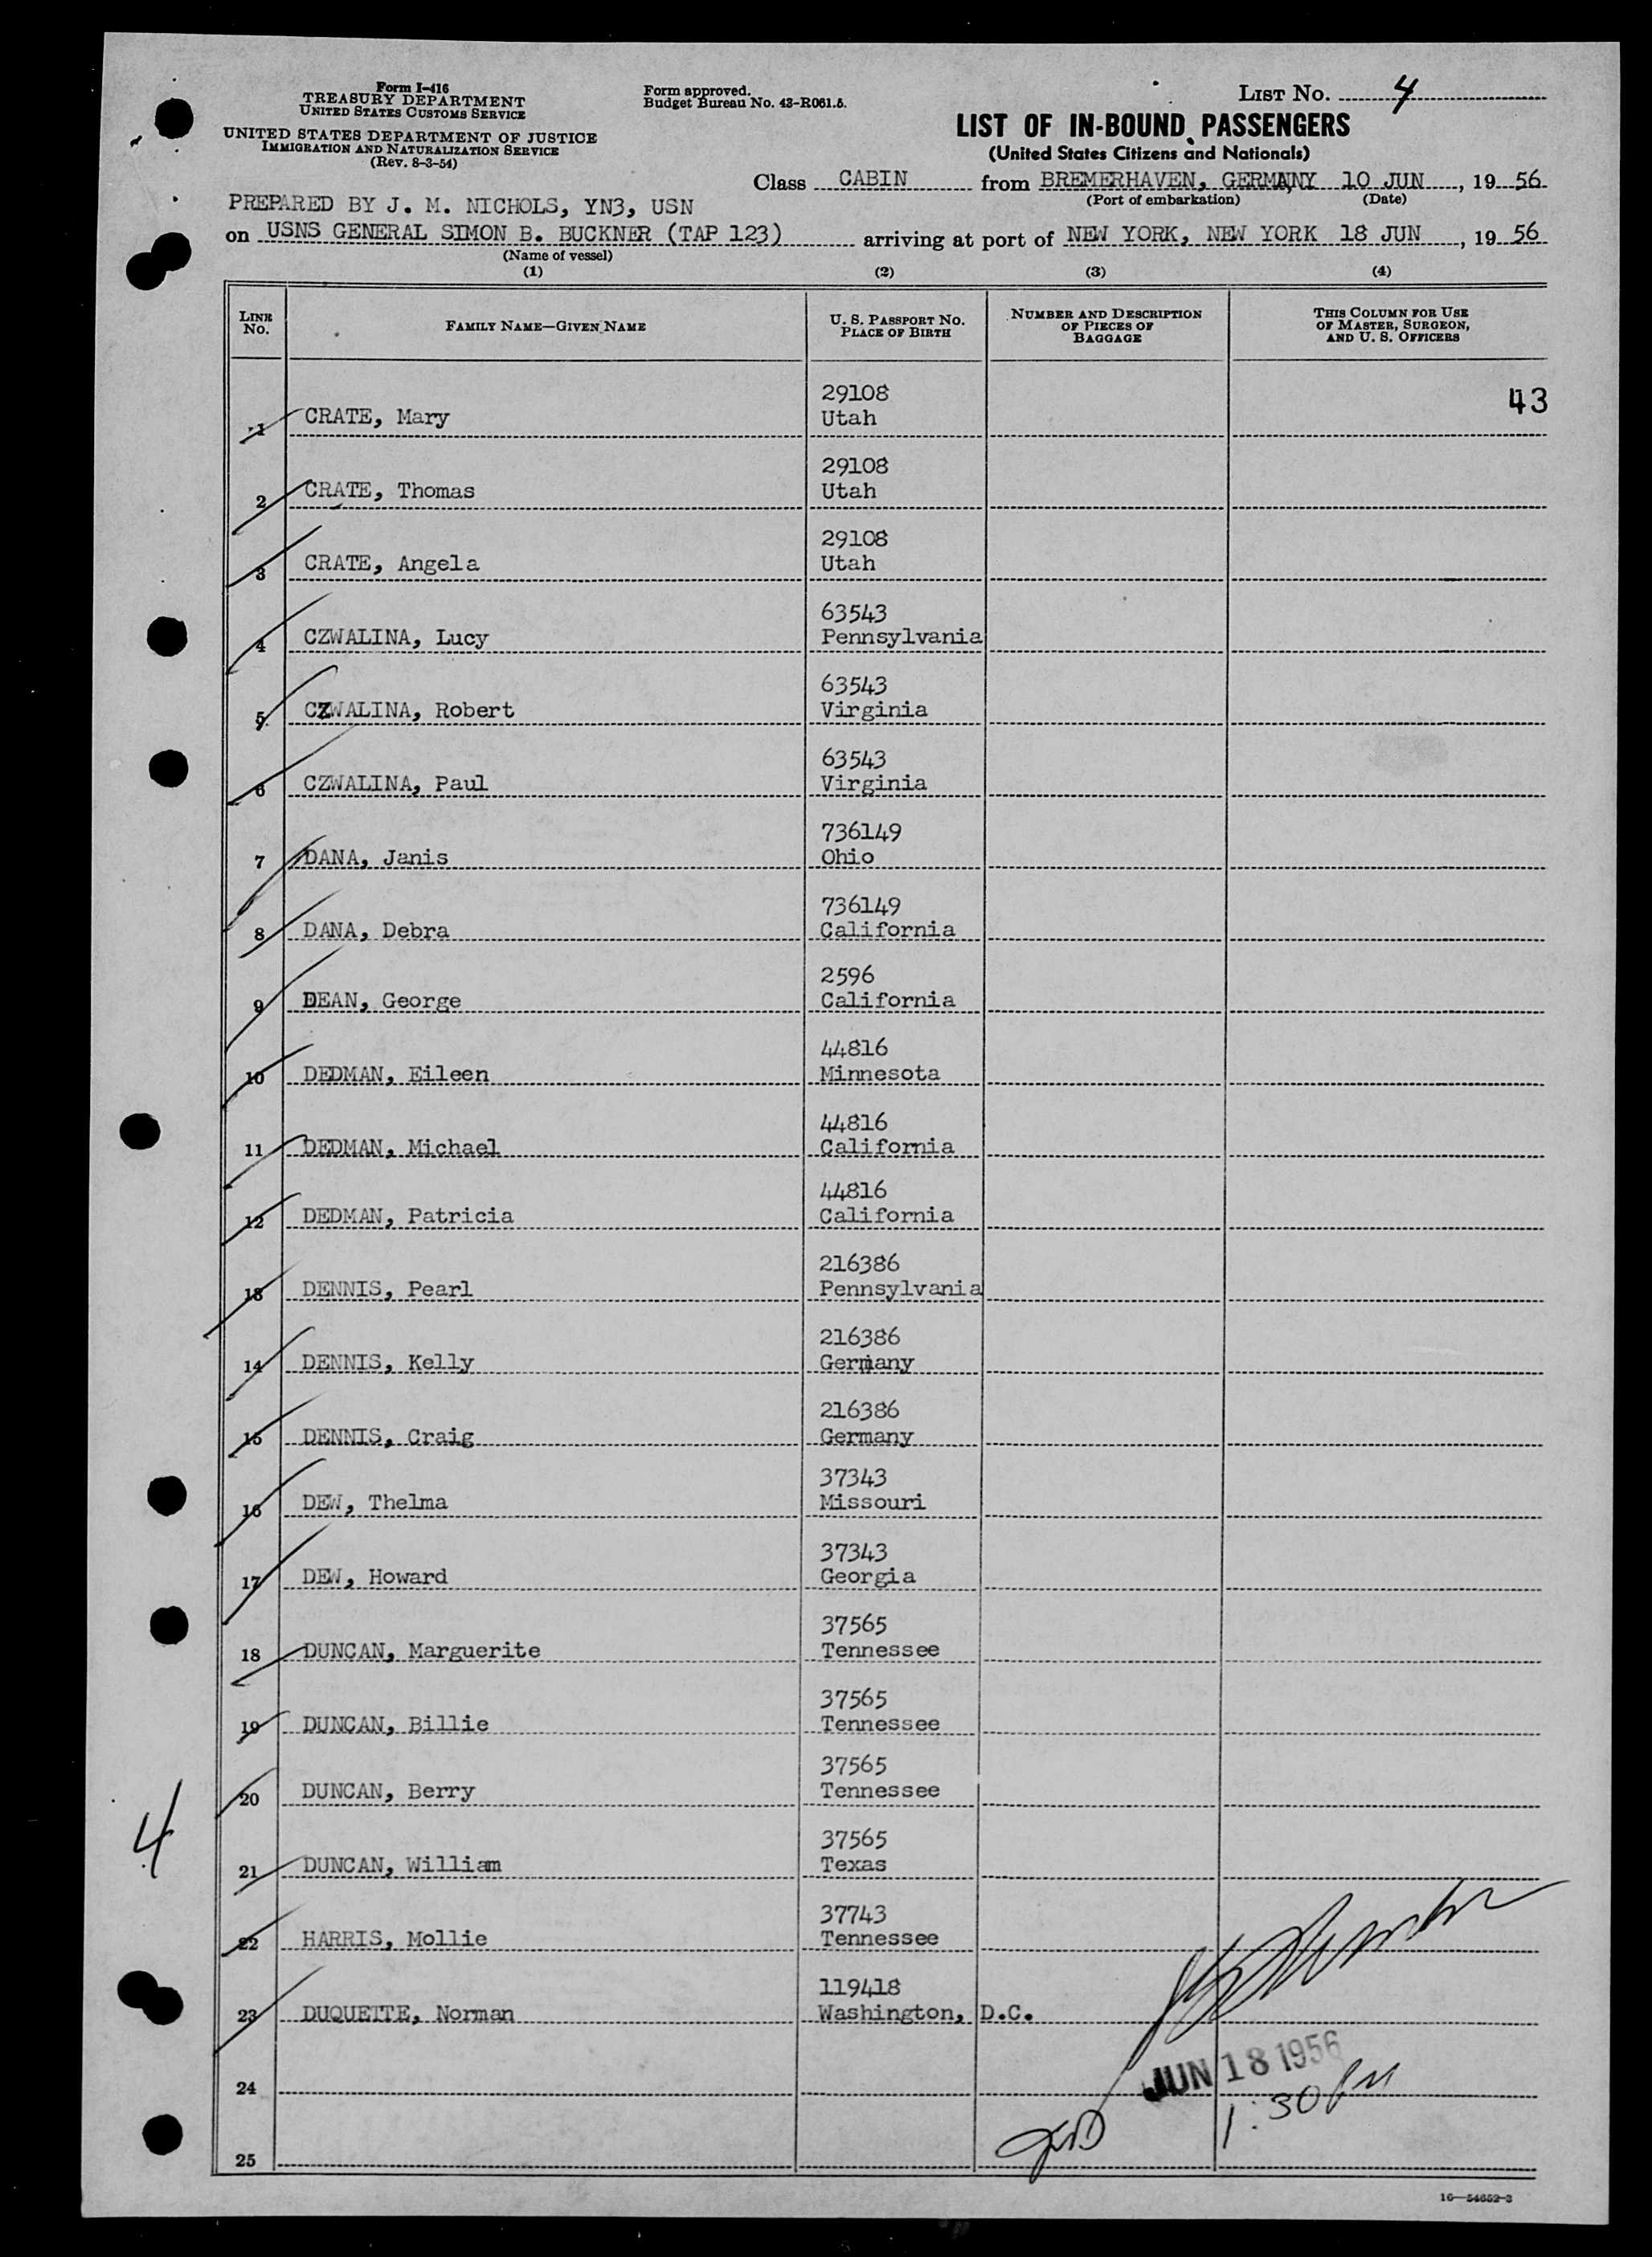 Form I-416
TREASURY DEPARTMENT
UNITED STATES CUSTOMS SERVICE
UNITED STATES DEPARTMENT OF JUSTICE
IMMIGRATION AND NATURALIZATION SERVICE
(Rev. 8-3-54)
Form approved.
Budget Bureau No. 43-R061.5.
LIST NO. 4
LIST OF IN-BOUND PASSENGERS
(United States Citizens and Nationals)
Class CABIN from BREMERHAVEN, GERMANY 10 JUN, 19 56
(Port of embarkation) (Date)
PREPARED BY J. M. NICHOLS, YN3, USN
on USNS GENERAL SIMON B. BUCKNER (TAP 123) arriving at port of NEW YORK, NEW YORK 18 JUN, 19 56
(Name of vessel)
(1) (2) (3) (4)
LINE NO. FAMILY NAME—GIVEN NAME U. S. PASSPORT NO. PLACE OF BIRTH NUMBER AND DESCRIPTION OF PIECES OF BAGGAGE THIS COLUMN FOR USE OF MASTER, SURGEON, AND U. S. OFFICERS
29108 43
1 CRATE, Mary Utah
29108
2 CRATE, Thomas Utah
29108
3 CRATE, Angela Utah
63543
4 CZWALINA, Lucy Pennsylvania
63543
5 CZWALINA, Robert Virginia
63543
6 CZWALINA, Paul Virginia
736149
7 DANA, Janis Ohio
736149
8 DANA, Debra California
2596
9 DEAN, George California
44816
10 DEDMAN, Eileen Minnesota
44816
11 DEDMAN, Michael California
44816
12 DEDMAN, Patricia California
216386
13 DENNIS, Pearl Pennsylvania
216386
14 DENNIS, Kelly Germany
216386
15 DENNIS, Craig Germany
37343
16 DEW, Thelma Missouri
37343
17 DEW, Howard Georgia
37565
18 DUNCAN, Marguerite Tennessee
37565
19 DUNCAN, Billie Tennessee
37565
20 DUNCAN, Berry Tennessee
4
37565
21 DUNCAN, William Texas
37743
22 HARRIS, Mollie Tennessee
119418
23 DUQUETTE, Norman Washington, D.C.
JUN 18 1956
24
1:30 PM
25
16—54652-3